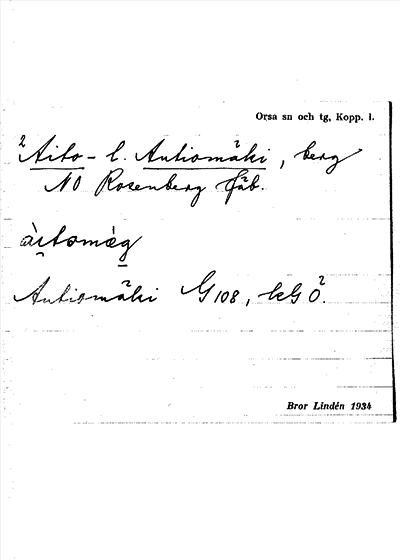 Orsa sn och tg, Kopp. l.
2 Aito- l. Antiomäki, berg
NO Rosenberg fäb.
àitomæg
Antiomäki G 108, kG Ö.
Bror Lindén 1934